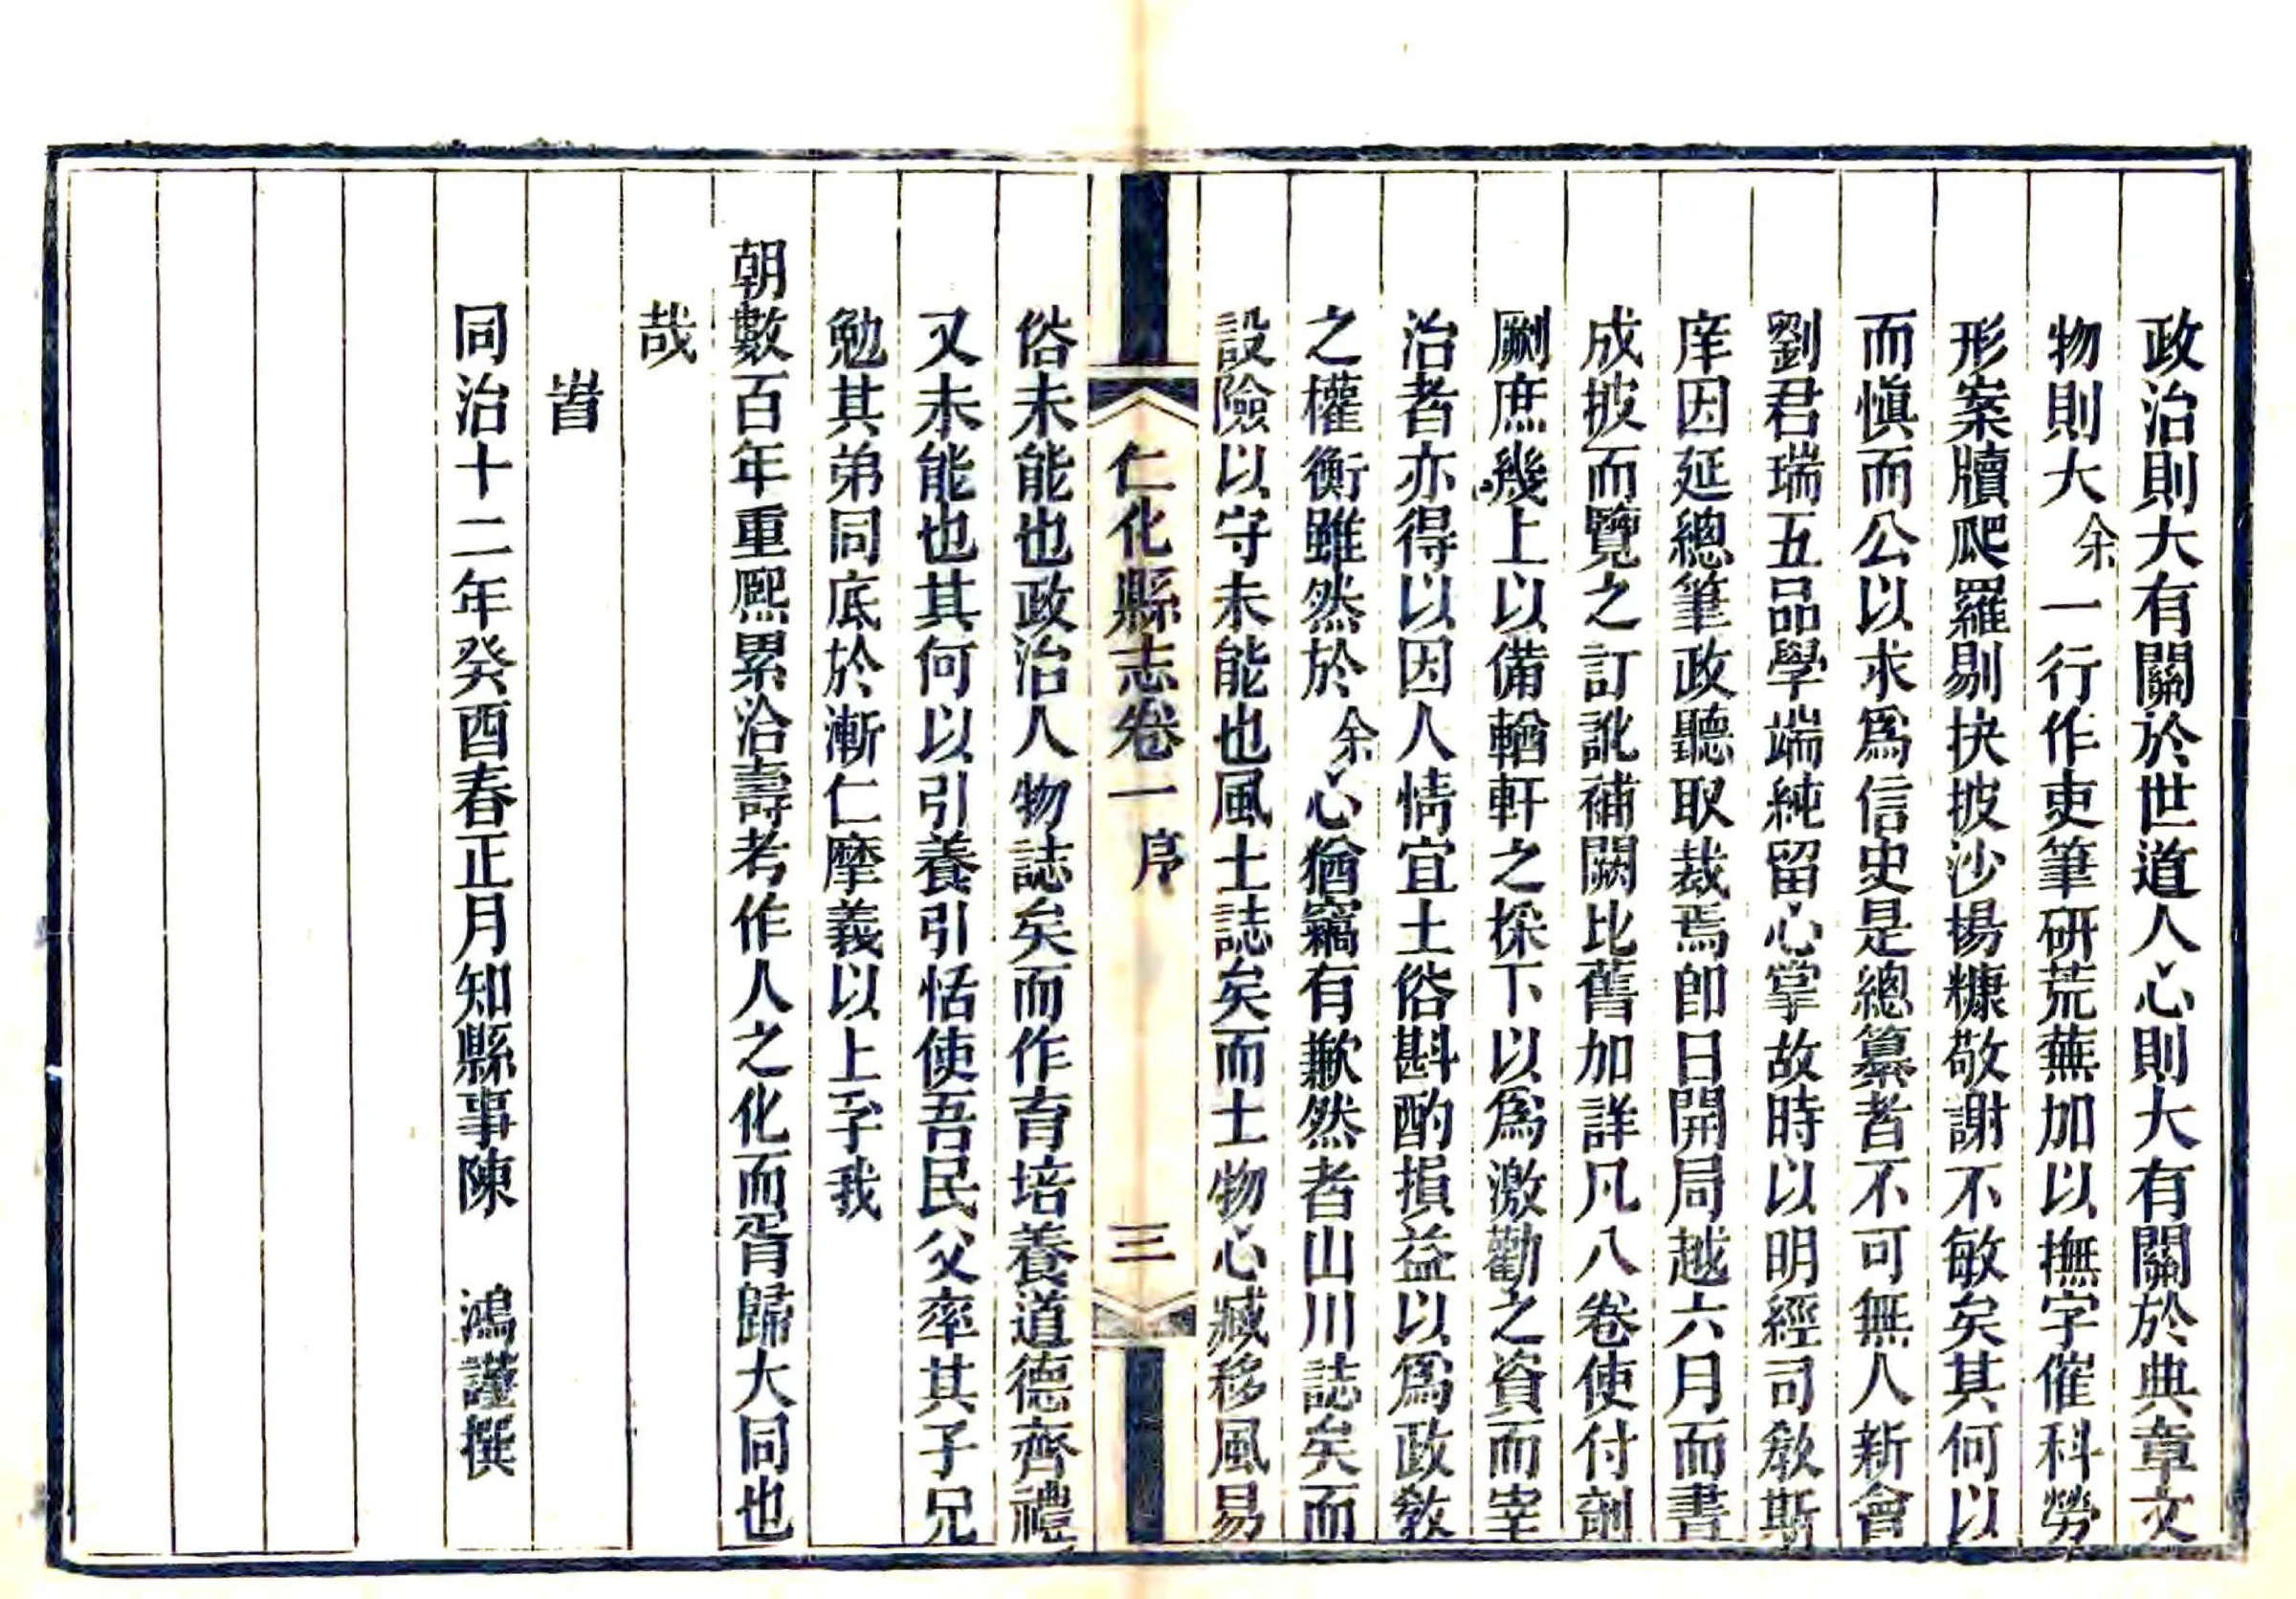 政治則大有關於世道人心則大有關於典章文
物則大余一行作吏筆研荒蕪加以撫字催科勞
形案牘爬羅剔抉披沙揚糠敬謝不敏矣其何以
而愼而公以求爲信史是總纂者不可無人新會
劉君瑞五品學端純留心掌故時以明經司敎斯
庠因延總筆政聽取裁焉卽日開局越六月而書
成披而覽之訂訛補闕比舊加詳凡八卷使付剞
劂庶幾上以備輶軒之採下以爲激勸之資而宰
治者亦得以因人情宜土俗斟酌損益以爲政敎
之權衡雖然於余心猶竊有歉然者山川誌矣而
設險以守未能也風土誌矣而士物心臧移風易
仁化縣志卷一 序 三
俗未能也政治人物誌矣而作育培養道德齊禮
又未能也其何以引養引恬使吾民父率其子兄
勉其弟同底於漸仁摩義以上孚我
朝數百年重熙累洽壽考作人之化而胥歸大同也
哉
旹
同治十二年癸酉春正月知縣事陳 鴻謹撰